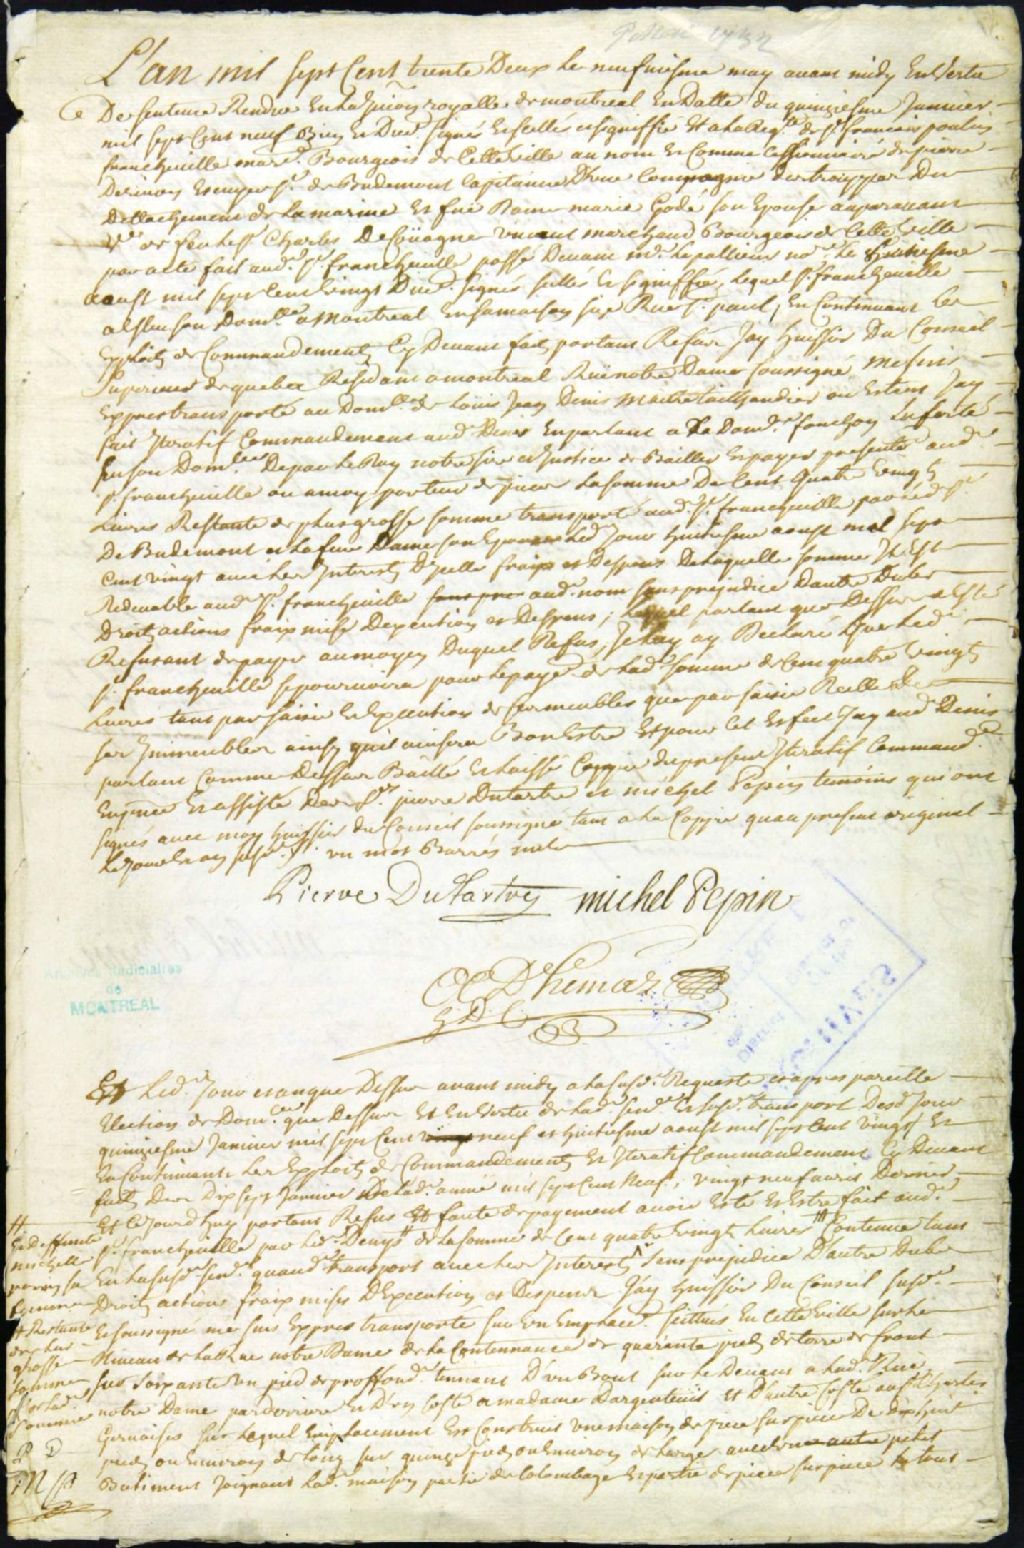 L'an mil sept Cent trente Deux Le neufviesme may avant midy En Vertu
De sentence Rendue En La royalle de montreal En Datte du quinziesme Janvier
mil sept Cent neuf signée Scellée et signiffié Et a la Reqte de Sr francois poulin
francheville marcd Bourgeois de Cette Ville au nom Et Comme Cessionnaire de pierre
Derivon Escuyer Sr de Budemont Capitaine D'une Compagnie des trouppes Du
Dettachement de La marine Et feüe Dame marie Godé son Epouse auparavant
Ve de feu le Sr Charles De Coüagne vivant marchand Bourgeois de Cette Ville
par acte fait aud. Sr francheuille passé Devant me Lepallieur nore Le huitiesme
aoust mil sept Cent Vingt Duë signée scellée Et signiffiée, Lequel Sr francheuille
a Esleu son Domlle a Montreal En sa maison size Rue St paul, En Continuant Les
Exploits de Commandement Cy Devant fait portant Refus Jay huissier Du Conseil
Superieur de quebec Residant a montreal Ruë notre Dame soussigné me suis
Expres transporté au Domlle de Loüis Jean Denis Maitre taillandier ou Estant Jay
fait Iteratif Commandement aud. Denis En parlant a sa Domle fanchon Laforté
En son Domlle De par Le Roy notre sire et Justice de Bailler Et payer presentement aud.
Sr francheuille ou a moy porteur de pieces La somme De Cent Quatre Vingt
Livres Restante de plus grosse somme transporté aud. Sr francheuille par led. Sr
De Budemont et La feue Dame son Epouse Led. Jour huitiesme aoust mil sept
cent vingt avec Les Interest D'icelle fraix et Despens De Laquelle somme Il Est
Redevable aud. Sr francheuille aud. nom sans prejudice Dautre Dubs
Droits actions fraix mise Dexecution et Despens; Lequel parlant que Dessus a Esté
Refusant de payer au moyen Duquel Refus Je Luy ay Declaré que Led.
Sr francheuille se pourvoira pour Le paye. de Lad. somme de Cent quatre Vingt
Livres tant par saisie Et Execution de ses meubles que par saisie Reelle de
ses Immeubles ainsy quil avisera Bon Estre Et pour Cet Effect Jay aud. Denis
parlant Comme Dessus Baillé et Laissé Coppie du present Iteratif Command.
En presence Et assisté Des Srs pierre Dutartre et michel Pepin temoins qui ont
signés avec moy huissier du Conseil soussigné tant a la Coppie quau present original
Le Jour Et an susd. Sr. un mot Barrés nul
Pierre Dutartre michel Pepin
Archives Judiciaires
de
MONTREAL
ARCHIVES
Et Led. Jour et an que Dessus avant midy a La susd. Requeste et apres pareille
Election de Domlle que Dessus Et En Vertu de Lad. sence Et susd. transport Desd. Jour
quinziesme Janvier mil sept Cent neuf et huitiesme aoust mil sept Cent vingt Et
En Continuant Les Exploits de Commandement Et Iteratif Commandement Cy Devant
fait Des Dix sept Janvier De Lad. année mil sept Cent Neuf, vingt neuf avril Dernier
Et Ce Jourd'huy portant Refus Et faute de payement avoir Esté Et Estre fait aud.
Sr francheuille par Led. Denys De La somme de Cent quatre Vingt Livres Contenue tant
En La susd. sence quaud. transport avec Les Interest, sans prejudice D'autre Dubs
Droits actions fraix mises D'Execution et Despens Jay huissier Du Conseil susd.
Et soussigné me suis Expres transporté sur un Emplacemt sittués En Cette Ville sur Le
Niveau de La Rue notre Dame de La Contennance de quarante pieds de terre de front
sur soixante Un pied de proffond. tennant D'un Bout sur Le Devant a Lad. Ruë
notre Dame par derriere Et D'un Costé a madame Dargenteüil Et D'autre Costé aud.
Gervaise sur Lequel Emplacement Est Construit une maison de piece sur piece De
pieds ou Environ de Long sur quinze pieds ou Environ de Large avec un autre petit
Batiment Joignant Lad. maison partie de Colombage Et partie de piece sur piece Le tout
Restante
de plus
grosse
somme